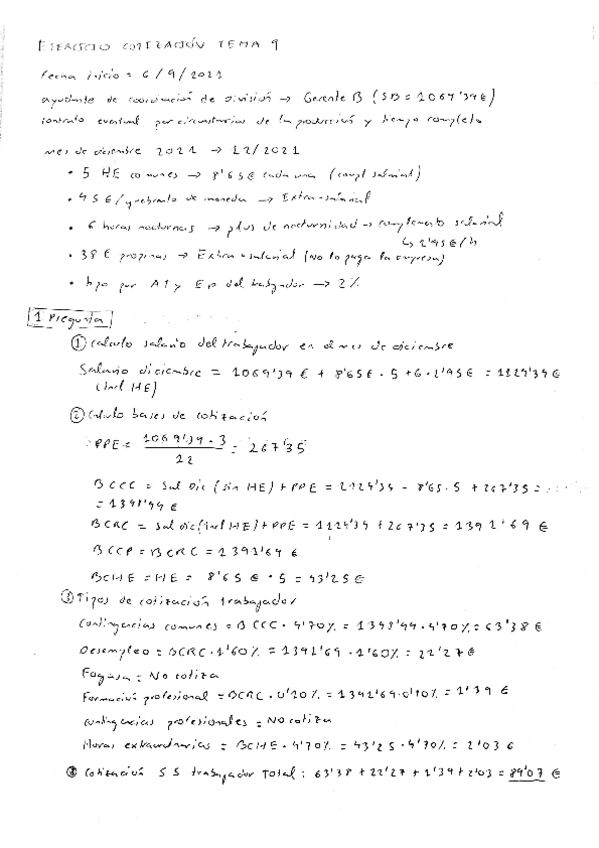 EJERCICIO COTIZACIÓN TEMA 9
Fecha inicio = 6/9/2021
ayudante de coordinación de división → Gerente B (SB = 1069'39€)
contrato eventual por circunstancias de la producción y tiempo completo
mes de diciembre 2021 → 12/2021
• 5 HE comunes → 8'65€ cada una (compl salarial)
• 45€/quebranto de moneda → Extra-salarial
• 6 horas nocturnas → plus de nocturnidad → complemento salarial
↳ 1'95€/h
• 38€ propinas → Extra-salarial (No lo paga la empresa)
• tipo por AT y EP del trabajador → 2%
1 Pregunta
① Calculo salario del trabajador en el mes de diciembre
Salario diciembre = 1069'39€ + 8'65€ · 5 + 6 · 1'95€ = 1124'34€
(incl HE)
② Calculo bases de cotización
PPE = 1069'39 · 3 / 12 = 267'35
BCCC = Sal Dic (sin HE) + PPE = 1124'34 - 8'65 · 5 + 267'35 =
= 1348'44€
BCRC = Sal dic (incl HE) + PPE = 1124'34 + 267'35 = 1391'69€
BCCP = BCRC = 1391'69€
BCHE = HE = 8'65€ · 5 = 43'25€
③ Tipos de cotización trabajador
Contingencias comunes = BCCC · 4'70% = 1348'44 · 4'70% = 63'38€
Desempleo = BCRC · 1'60% = 1391'69 · 1'60% = 22'27€
Fogasa = No cotiza
Formación profesional = BCRC · 0'10% = 1391'69 · 0'10% = 1'39€
Contingencias profesionales = No cotiza
Horas extraordinarias = BCHE · 4'70% = 43'25 · 4'70% = 2'03€
④ Cotización SS trabajador Total: 63'38 + 22'27 + 1'39 + 2'03 = 89'07€